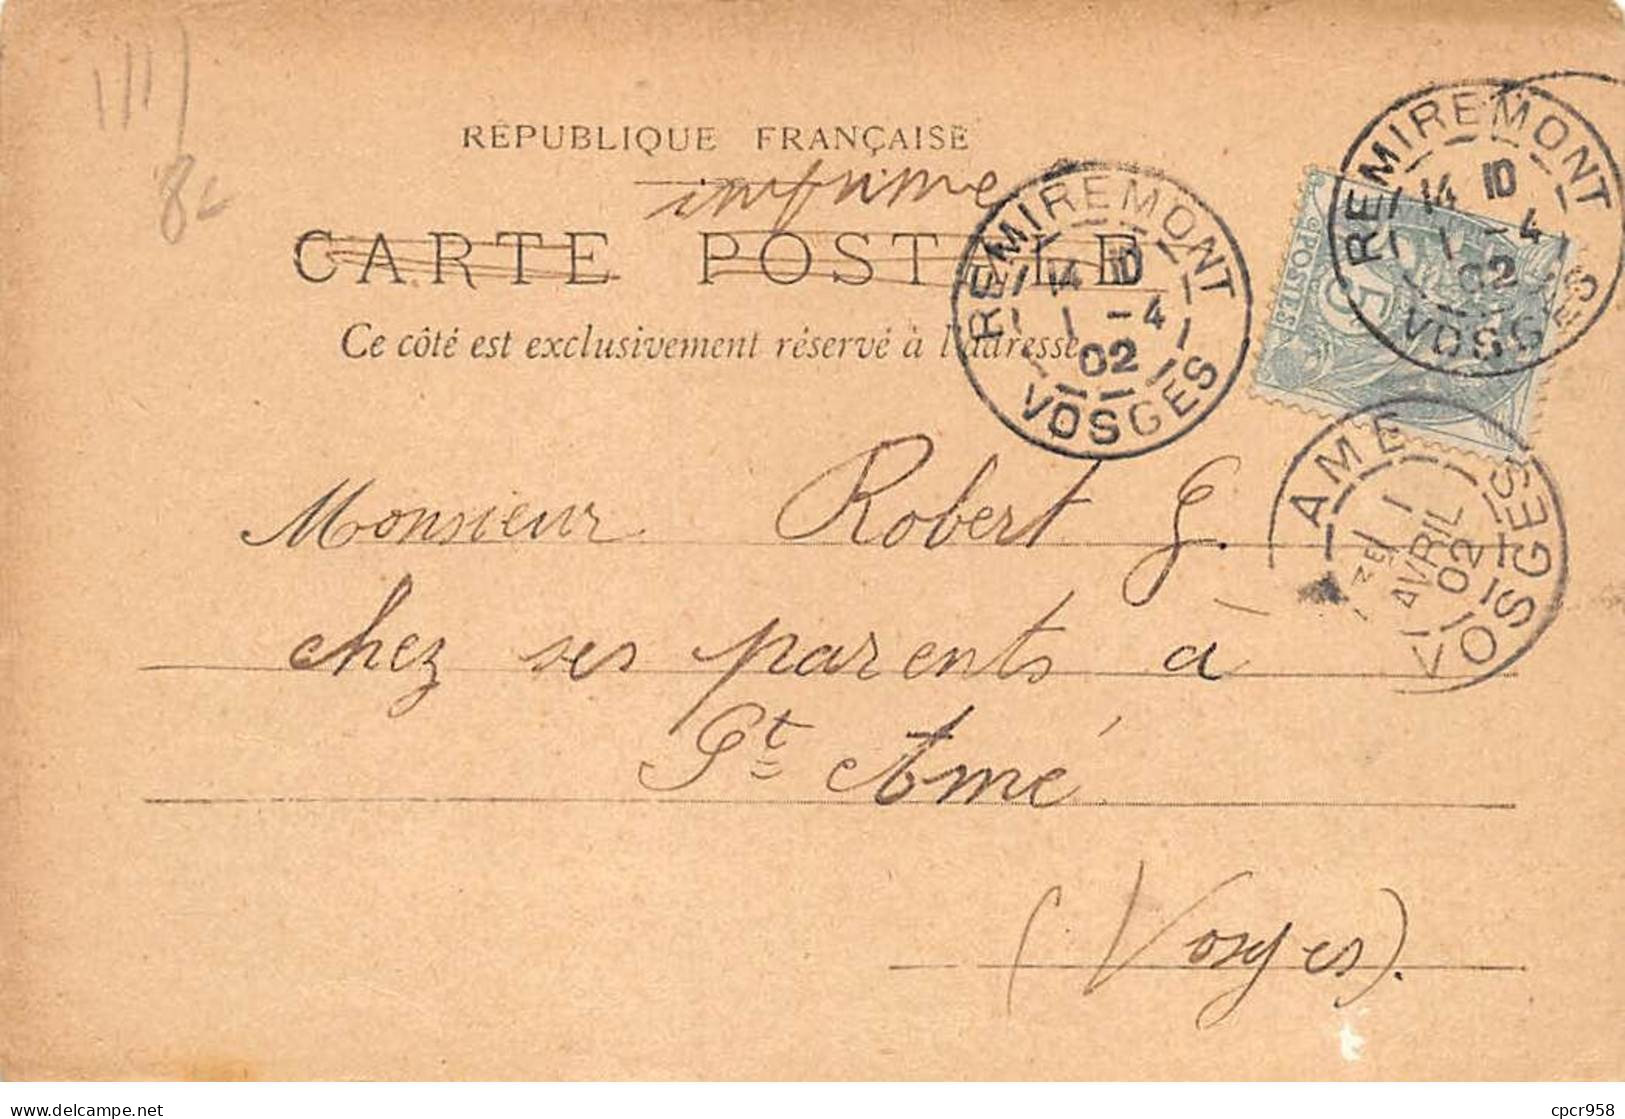 RÉPUBLIQUE FRANÇAISE
imprimé
CARTE POSTALE
Ce côté est exclusivement réservé à l'adresse
REMIREMONT
14 10
1 -4
02
VOSGES
REMIREMONT
14 10
1 -4
02
VOSGES
POSTES
5
AME
1
AVRIL
02
VOSGES
Monsieur Robert G.
chez ses parents à
St Amé
(Vosges).
8c
delcampe.net
cpcr958